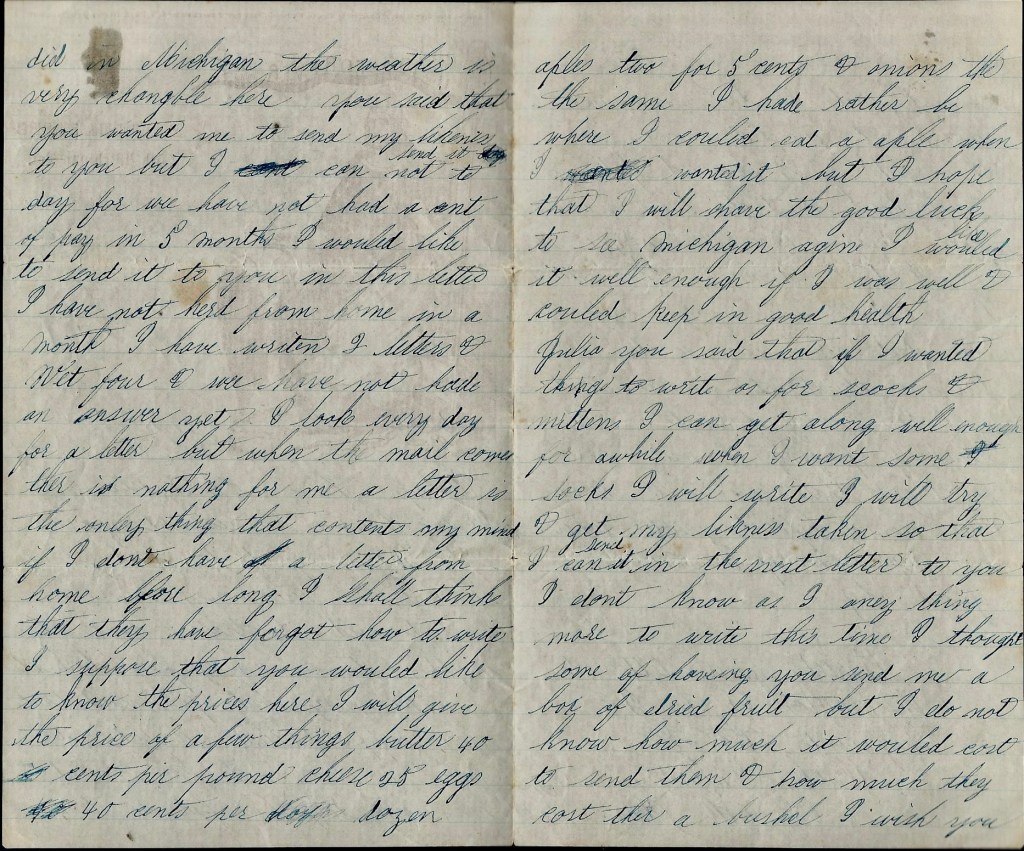 did in Michigan the weather is
very changble here you said that
you wanted me to send my likeness
to you but I can not send it to
day for we have not had a cent
of pay in 5 months I would like
to send it to you in this letter
I have not herd from home in a
month I have writen 2 letters &
Wet four & we have not hade
an answer yet I look every day
for a letter but when the mail comes
ther is nothing for me a letter is
the onley thing that contents my mind
if I dont have a letter from
home before long I Shall think
that they have forgot how to write
I suppose that you would like
to know the prices here I will give
the price of a few things butter 40
cents pir pound chese 25 eggs
40 cents per dozen
aples two for 5 cents & onions the
the same I hade rather be
where I couled eat a aple when
I wanted it but I hope
that I will have the good luck
to se Michigan agin I would like
it well enough if I was well &
couled keep in good health
Julia you said that if I wanted
things to write as for scocks &
mittens I can get along well enough
for awhile when I want some
socks I will write I will try
& get my likness taken so that
I can send it in the next letter to you
I dont know as I aney thing
more to write this time I thought
some of haveing you send me a
box of dried fruit but I do not
know how much it would cost
to send them & how much they
cost ther a bushel I wish you